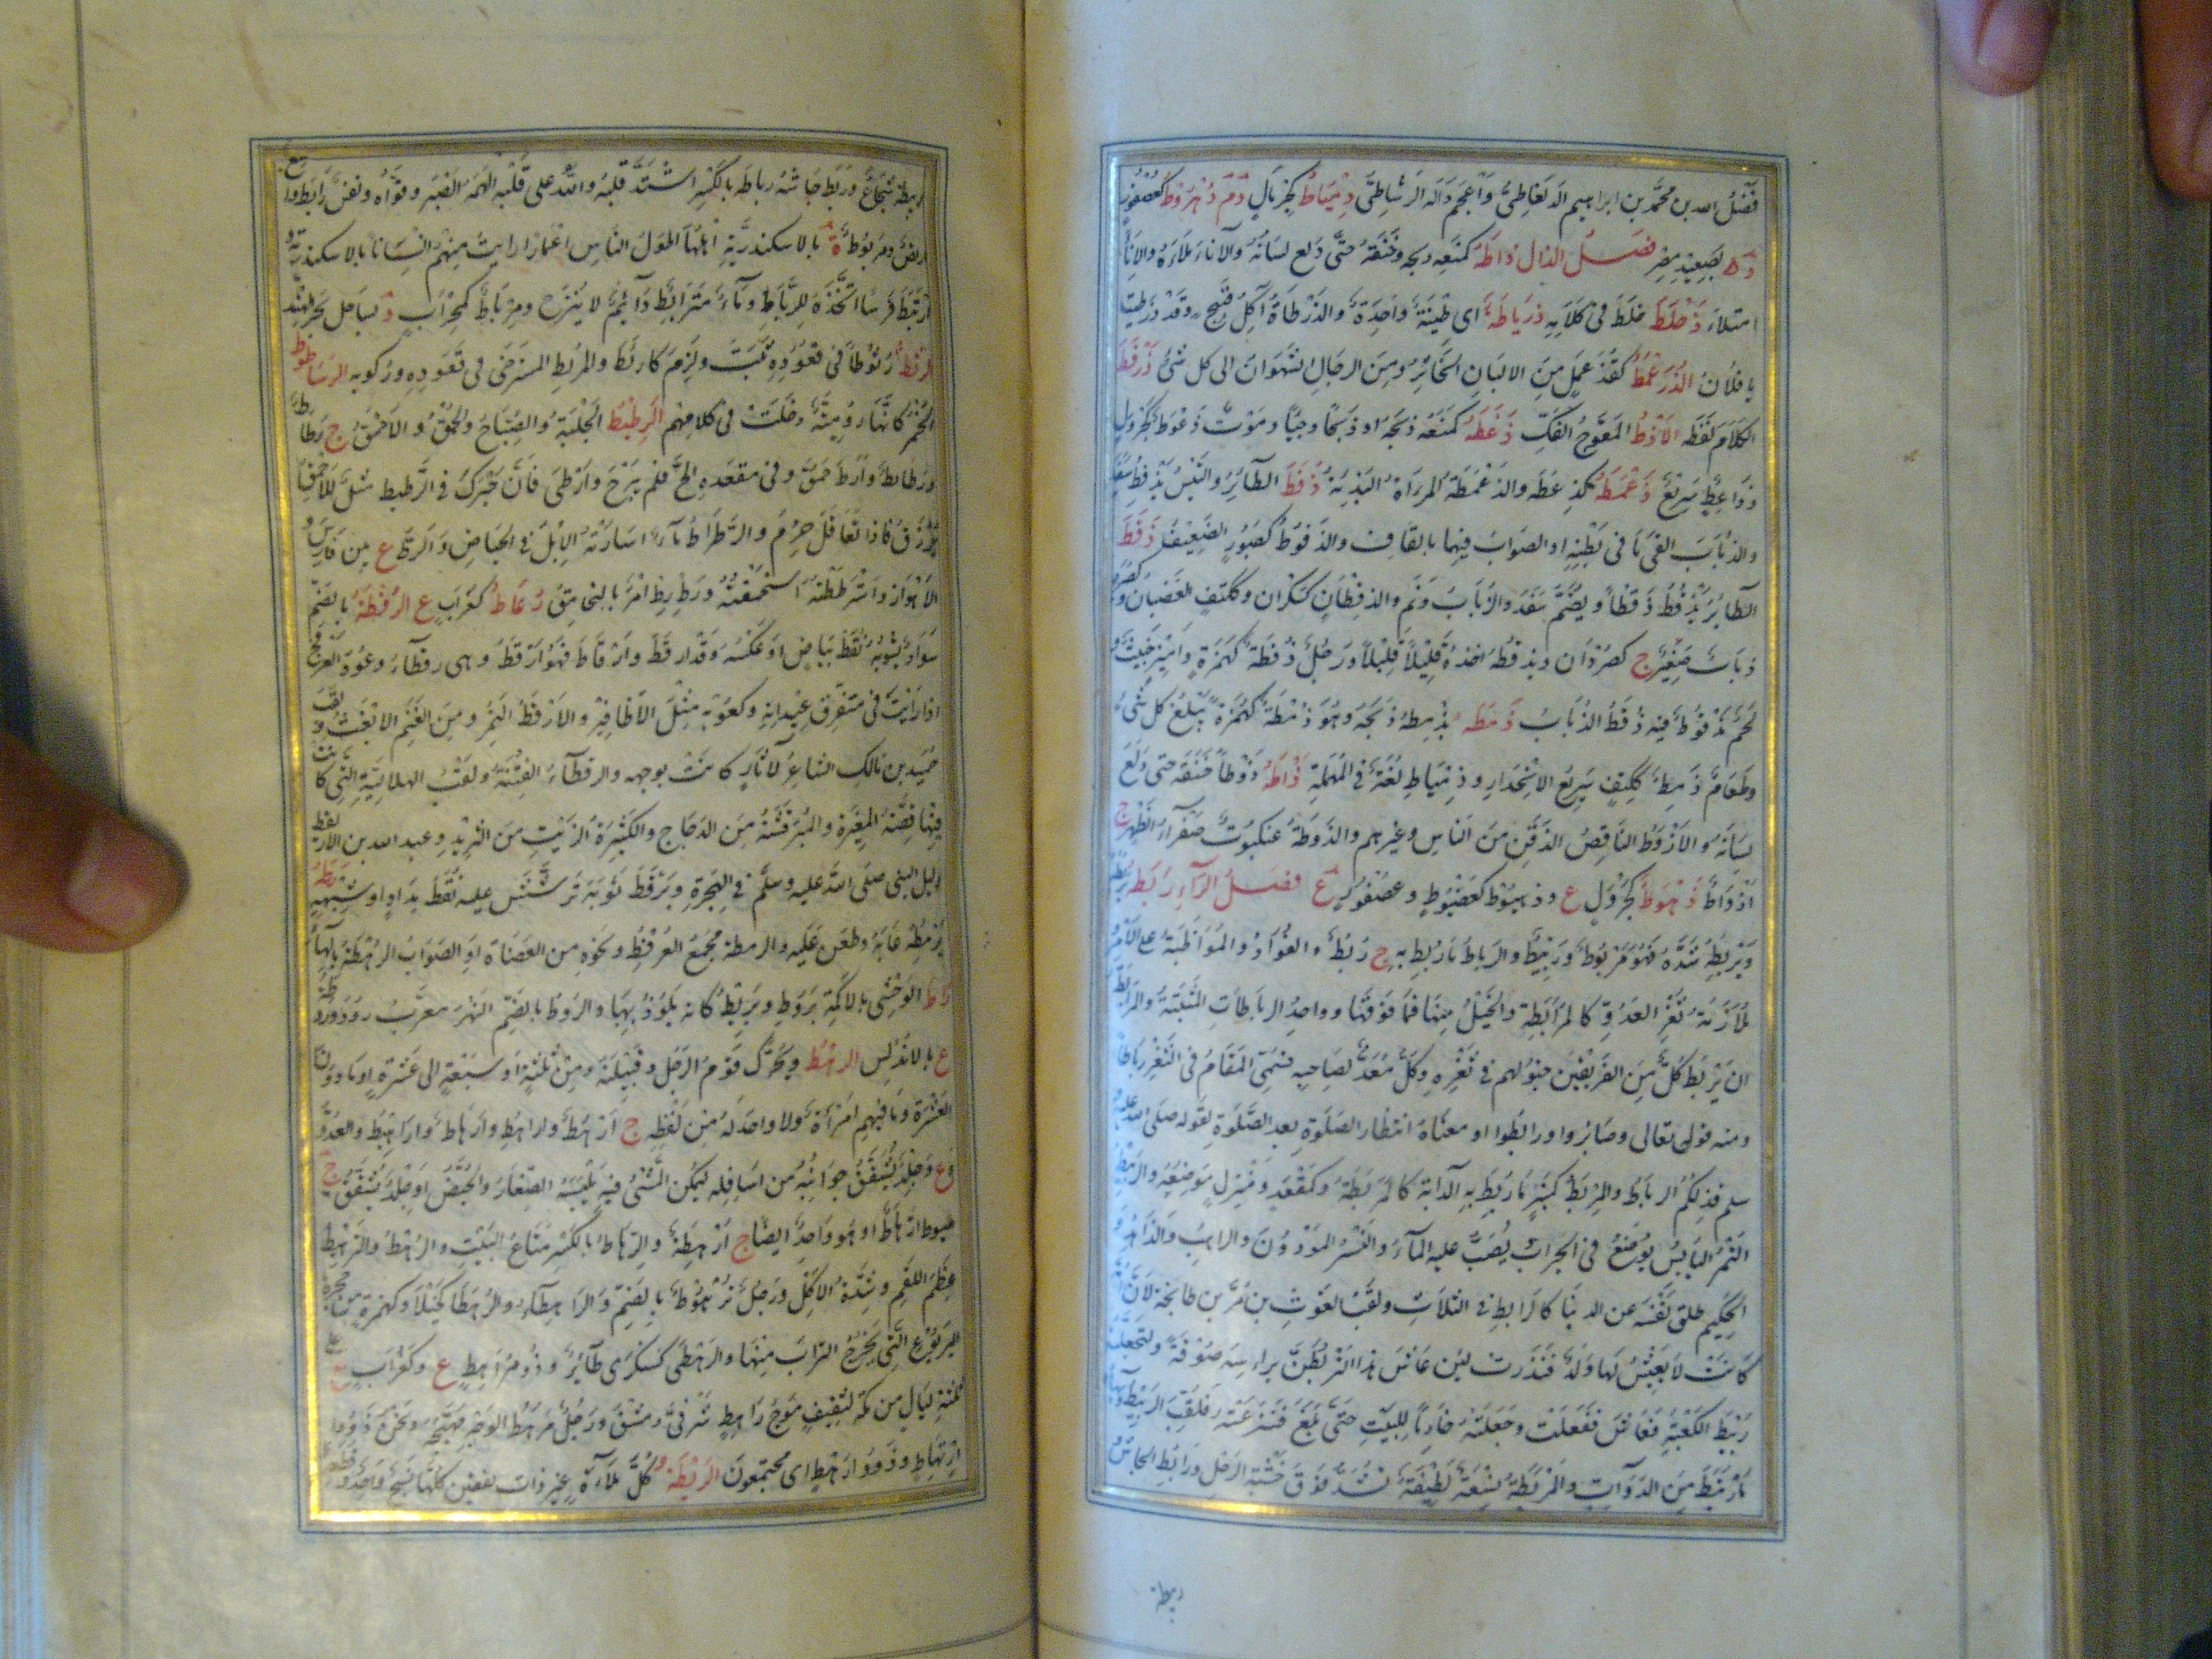 فَضْلُ الله بن محمَّد بن ابراهيم الدَّلغَاطِىُّ وَاَعْجَمَ دَالَه الرُشَاطِىُّ دِمْيَاطُ كجِرْيَالٍ دم دُهْرُوطُ كعُصْفُورٍ
ة بصَعِيْدِ مِصْرَ فصْلُ الذال ذَأطَهُ كمنَعه ذبحه وخَنَقَهُ حتَّى دَلع لسَانُهُ والاناءَ مَلَأهُ والاناءُ
امتلأ ذَحْلَطَ خلَطَ فى كلَامِهِ ذرْيَاطَةٌ اى طِيْنَةٌ وَاحِدَةٌ والذَرْطَاةُ اَكلٌ قَبِيْح وقد ذرْطَيْتَ
يا فلَانُ الذُرَعْمِطُ كقُذَعْمِلٍ مِنَ الالبَانِ الخَاثِرُ ومِنَ الرجَالِ الشَهْوَانُ الى كل شئٍ ذَرْقَطَ
الكلَامَ لقَطَه الاَذَطُّ المُعوَجُّ الفَكِّ ذَعَطَهُ كمَنَعَه ذبَحَه او ذبحًا وحِيًّا وموْتٌ ذعْوَطٌ كجَرْوَلٍ
وذَاعِطٌ سَرِيْعٌ ذَعْمَطَهُ كذعَطَه والذعْمَطَةُ المرْأةُ البَذِيَةُ ذَفَطَ الطَآئِرُ والتَيْسُ يَذْفِطُ سَفَدَ
والذبَابُ القَى مَا فى بَطْنِهِ او الصوَابُ فِيهِما بالقَافِ والذَفُوطُ كصَبُورٍ الضَعِيْفُ ذَقَطَ
الطَآئِرُ يَذْقُطُ ذَقْطًا ويُضَمُّ سَفَدَ والذُبَابُ وَنَمَ والذقْطَانُ كسَكرَان وكَكَتِفٍ الغَضْبَان وكصُرَدٍ
ذبَابٌ صَغِيْرٌ ج كصِرْدَان وتذَقَّطَهُ اَخَذَهُ قَلِيْلًا قَلِيْلًا ورَجُلٌ ذُقَطَةٌ كهُمَزَةٍ وامِيْرٍ خَبِيْثٌ و
لَحْمٌ مَذْقُوطٌ فيه ذَقْطُ الذُبَابِ ذَمَطَهُ يذْمِطُهُ ذبَحَهُ وهُوَ ذُمَطَةٌ كهُمَزَةٍ يَبْلَعُ كل شَىْءٍ
وطعَامٌ ذَمِطٌ ككَتِفٍ سَرِيْعُ الانْحِدَارِ وذِمْيَاطُ لُغَةٌ فى المُهْمَلَةِ ذَاطَهُ ذَوْطًا خَنَقَه حتى دَلَعَ
لِسَانُهُ والاَذْوَطُ النَاقِصُ الذَقَنِ منَ الناسِ وغيرهم والذَوَطَةُ عنكبوتٌ صَفْرَاءُ الظَهْرِ ج
اَذْوَاطٌ ذَهْوَطٌ كجَرْوَلٍ ع وذهيُوط كعَضْيَوْطٍ وعصْفُورٍ ع فصْلُ الرَآءِ رَبَطَهُ يَرْبُطُهُ
وَيَرْبِطُهُ شَدَّهُ فَهُوَ مَرْبُوطٌ وَرَبِيْطٌ والرِبَاطُ مَا رُبِطَ بِهِ ج رُبُطٌ والفُؤَادُ والمُوَاظَبَةُ عَلى الاَمْرِ و
مُلَازَمَةُ ثَغْرِ العَدُوِّ كَالمُرَابَطَةِ والخَيْلُ مِنهَا فمَا فَوْقَهَا وواحدُ الرِبَاطَاتِ المَبْنِيَّةِ والمُرَابَطَةُ
ان يَرْبطَ كُلٌّ مِنَ الفَرِيْقَيْنِ خيُولَهم فى ثَغْرِهِ وكُلٌّ مُعِدٌّ لصَاحِبِهِ فسُمِّىَ المُقَامُ فى الثَغْرِ رِبَاطًا
ومنه قوله تعالى وصَابِروا ورابطُوا او معنَاهُ انتظار الصَلٰوةِ بعد الصَلٰوةِ لقَوله صلى الله عليه و
سلم فذلكُمُ الرِبَاطُ والمِرْبَطُ كمِنْبَرٍ مَا رُبِطَ بِهِ الدَابَة كالمِرْبَطَةِ وكمَقْعَدٍ ومَنْزِلٍ مَوْضِعُهُ والرَبِيْطُ
التَمْرُ اليَابِسُ يُوضَعُ فى الجِرَابِ يُصَبُّ عليه المآءُ والبُسْرُ المَوْدُونُ والراهِبُ والزَاهِدُ و
الحَكِيْم ظلَف نَفْسَه عن الدنيَا كالرَابِطِ فى الثلَاثِ ولقَبُ الغَوْثِ بن مُرِّ بن طابخَة لانَّ اُمَّهُ
كَانَتْ لا يَعِيْشُ لَها وَلَدٌ فَنَذَرت لَئِن عَاشَ هذا لَتَرْبُطَنَّ برأسِهِ صُوْفَةً ولَتَجعَلَنَّهُ
رَبِيْطَ الكَعْبَةِ فَعَاشَ فَفَعَلَتْ وجَعَلَتْهُ خَادِمًا لِلبَيْتِ حتَّى بَلَغَ فنَزَعَتْه فلُقِّبَ الرَبِيْطَ وبِهَاءٍ
مَا رْتُبِطَ مِنَ الدَوَآبِّ والمِرْبَطَةُ نِسْعَةٌ لَطِيْفَةٌ تُشَدُّ فَوْقَ خَشَبَةِ الرَحْلِ ورَابِطُ الجَاشِ و
ربيطه
ربيطه شُجَاعٌ وَرَبَطَ جَاشُهُ رباطَة بالكَسْرِ اشْتَدَّ قلبُهُ واللهُ على قَلْبِهِ اَلْهَمَهُ الصَبْرَ وقَوَّاهُ ونفَسٌ رَابِطٌ واسِعٌ
اَرِيْضٌ ومَرْبُوطٌ ة بالاسكندريَّةِ اَهْلُهَا اَطْوَلُ الناسِ اَعْمَارًا رايتُ مِنهُم اِنْسَانًا بالاسكندريَّةِ و
ارْتَبَطَ فَرَسًا اتَّخَذَهُ لِلرِّبَاطِ ومَآءٌ مُتَرَابِطٌ دَآئِمٌ لا يُنْزَحُ ومِرْبَاطٌ كمِحْرَابٍ د بسَاحِل بَحْرِ الهِنْدِ
رَثَطَ رُثُوْطًا فى قُعُوْدِهِ ثَبَتَ ولَزِمَ كارثَطَ والمُرْثِط المسترخِى فى قُعُودِهِ ورُكوبِه الرَسَاطُوْنُ
الخَمْرُ كانَّهَا رُومِيَّةٌ دخَلَتْ فى كلامِهم الرَطِيْطُ الجَلَبَةُ والصِيَاحُ والحُمْقُ والاحْمَقُ ج رِطَاطٌ
ورَطَائِطُ وَاَرَطَّ حَمُقَ وفى مقعَدِهِ اَلَحَّ فلم يَبْرَحْ واَرِطِّى فَانَّ خَيْرَكَ فى الرَّطِيط مَثَلٌ للاَحْمَقِ
يُرْزَقُ فاذا تَعَاقَلَ حُرِمَ والرَّطْرَاطُ مَآءٌ اَسَارَتْهُ الاِبِلُ فى الحِيَاضِ وَالرَطُّ ع بين فَارِسَ و
الاَهْوَازِ واسْتَرْطَطْتُهُ اسْتَحْمَقْتُهُ ورَطْ رَطْ اَمْرٌ بالتحَامُقِ رُغَاطُ كغُرَابٍ ع الرُقْطَةُ بالضَمّ
سَوَادٌ يَشُوبُهُ نُقَطُ بَيَاضٍ اوْ عَكْسُه وَقَد ارْقَطَّ وارْقَاطَّ فهُوَ ارْقَطُ وهى رقطَآءُ وعُوْدُ العَرْفَجِ
اذا رَايْتَ فى مُتَفَرِّقِ عِيْدانِهِ وكُعُوْبِهِ مِثْلَ الاَظَافِيْرِ والارْقَطُ النَمِرُ ومِنَ الغَنَمِ الاَبْغَثُ ولقَبُ
حُمَيْدِ بن مَالِكٍ الشَاعِرِ لاٰثَارٍ كانَتْ بوجهه والرقطآءُ الفِتْنَةُ ولَقَبُ الهلاليَّةِ التِى كانَتْ
فِيْهَا قِصَّةُ المُغِيْرَةِ والمُبَرْقَشَةُ مِنَ الدَجَاج والكَثِيْرَةُ الزَيْتِ مِنَ الثرِيْدِ وعبد الله بن الاُرَيْقِط
دلِيْلُ النبى صلى الله عليه وسلَّم فى الهِجْرَةِ وتَرَقَّطَ ثَوْبَهُ تَرَشَّشَ عليه نُقَطُ مِدَادٍ او شِبْهِهِ رَمَطَهُ
يَرْمِطُهُ عَابَهُ وطعَن عَليْه والرمطُ مَجْمَعُ العُرْفُطِ ونَحْوِهِ من العِضَاهِ اوِ الصوَابُ الرَهْطُ بالهَاءِ
رَاطَ الوَحْشِى بالاكَمَةِ يَرُوطُ ويَرِيْطُ كانه يَلُوْذُ بهَا والرُوطُ بالضَمّ النَهْرُ معرَّبُ رُوْد ورُوْطَةُ
ع بالاندَلُسِ الرهْطُ ويُحَرَّك قَوْمُ الرَجُلِ وقَبِيْلَتُهُ ومِنْ ثلٰثةٍ او سبعَةٍ الى عَشْرَةٍ او مَا دُوْنَ
العَشْرَةِ ومَا فِيْهِم امْرَأَةٌ ولا واحدَ لَهُ مِنْ لَفْظِهِ ج اَرْهُطٌ واراهِطُ وارْهَاطٌ وارَاهِيْطُ والعَدُوُّ
و ع وجِلْدٌ يُشَقَّقُ جوانِبُهُ من اَسَافِلِه ليُمْكِنَ المَشْىُ فيه يَلْبَسُهُ الصِغَارُ والحُيَّضُ او جِلْدٌ يُشَقَّقُ ج
سُيُوْرًا رِهَاطٌ او هُو واحِدٌ ايضًا ج اَرْهِطَةٌ والرِهَاطُ بالكَسْرِ مَتَاعُ البَيْتِ والرَهْطُ والتَرْهِيْطُ
عِظَمُ اللَقْمِ وشِدَّةُ الاَكْلِ ورَجُلٌ تُرْهُوطٌ بالضَمّ والرَاهِطَآءُ والرُهَطَا كخُيَلَاءَ وكهُمَزَةٍ من جِحَرَةِ
اليَرْبُوْعِ التِى يُخْرِجُ التُرَابَ مِنهَا والرَهْطَى كسَكْرَى طآئرٌ وذُو مَرَاهِطَ ع وكغُرَابٍ ع على
ثلثة ليَالٍ من مكّة لثَقِيْفٍ ومَرْجُ رَاهِطٍ شَرْقِىَّ دِمَشْقَ ورَجُلٌ مُرَهَّطُ الوَجْهِ مُهَبَّجُهُ ونَحْنُ ذَوُوا
ارْتِهَاطٍ وذَوُوْا رَهْطٍ اى مُجْتَمِعُونَ الرَيْطَةُ كُلُّ مُلَآءَةٍ غيرِ ذات لِفْقَيْنِ كلّهَا نَسْجٌ وَاحِدٌ وقطْعَةٌ